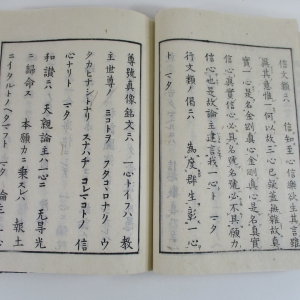 信文類ニ 信知至心信樂欲生其言雖
異其意惟一何以故三心已疑蓋無雜故真
實一心是名金剛真心金剛真心是名真實
信心真實信心必具名號名號必不具願力
信心也是故論主建言我一心 マタ
行文類ノ偈ニ 為度群生彰一心
ト マタ
尊號真像銘文ニ 一心トイフハ教
主世尊ノミコトヲフタコヽロナリウ
タカヒナシトナリスナハチコレマコトノ信
心ナリト マタ
和讃ニハ 天親論主ハ一心ニ 无导光
ニ歸命ス 本願力ニ乗スレハ 報土
ニイタルトノヘタマフト マタ 論主ノ一心